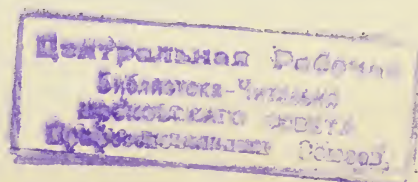 Центральная Рабочая
Библиотека-Читальня
Московского Совета
Профессиональных Союзов.